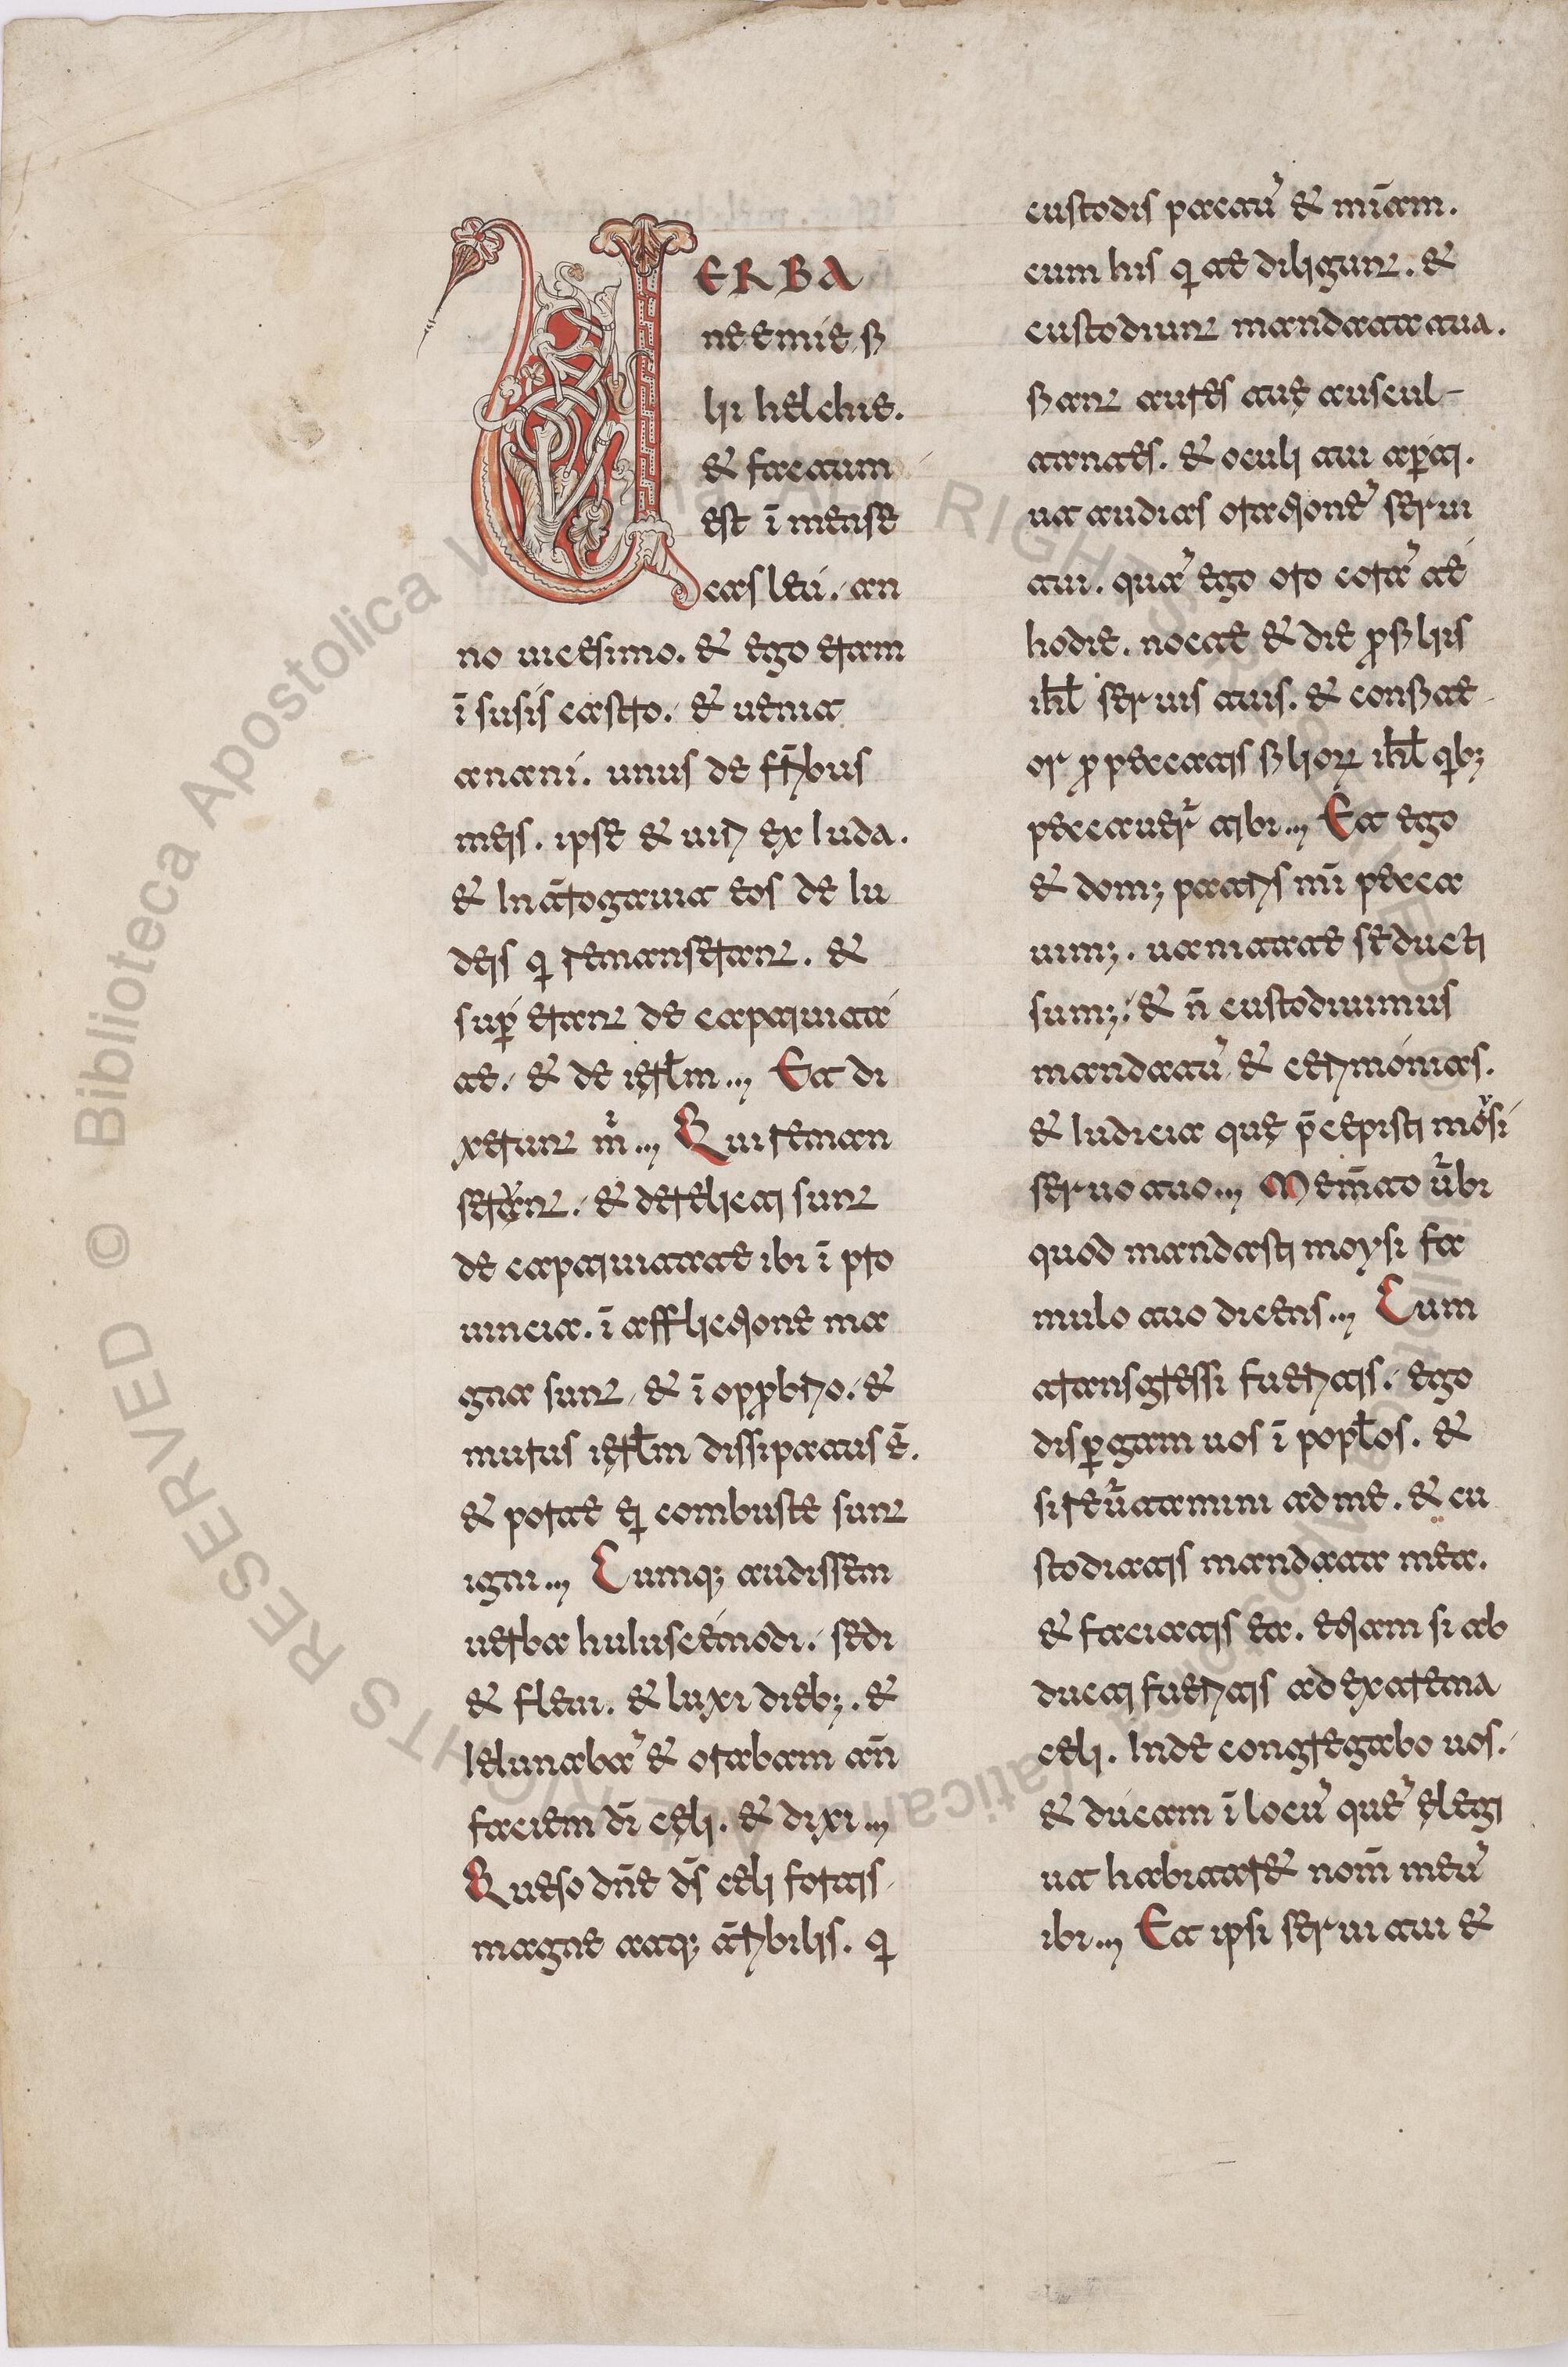 VERBA
neemie fi
lii helchie.
& factum
est ī mense
casleú. an
no uicesimo. & ego eram
ī susis castro. & uenit
anani. unus de fr̄ibus
meis. ipse & uiri ex iuda.
& int̄rogaui eos de iu
deis q̇ remanserant. &
sup̱erant de captiuita
te. & de ierl̄m. Et di
xerunt m̊. Qui reman
serant. & derelicti sunt
de captiuitate ibi ī pro
uincia. ī afflictione ma
gna sunt. & ī opp̱brio. &
murus ierl̄m dissipatus ē.
& porte ei combuste sunt
igni. Cumq; audissem
uerba huiuscemodi. sedi
& fleui. & luxi dieb;. &
ieiunabā & orabam an̄
faciem dī cęli. & dixi.
Queso dn̄e ds̄ celi fortis
magne atq; t̄ribilis. q̇
custodis pactū & mīam.
cum his q̇ te diligunt. &
custodiunt mandata tua.
fiant aures tuę auscul-
tantes. & oculi tui ap̱ti.
ut audias orationē serui
tui. quā ego oro corā te
hodie. nocte & die p̱ filiis
ihl̄ seruis tuis. & confite
or p̱ peccatis filiorum ihl̄ qb;
peccauer̄ tibi. Et ego
& dom; patris mī pecca
uim;. uanitate seducti
sum;. & n̄ custodiuimus
mandatū & cerimonias.
& iudicia quę p̄cepisti moysi
seruo tuo. Mem̄to ūbi
quod mandasti moysi fa
mulo tuo dicens. Cum
transgressi fueritis. ego
disp̱gam uos ī popl̄os. &
si reūtamini ad me. & cu
stodiatis mandata mea.
& faciatis ea. etiam si ab
ducti fueritis ad extrema
celi. Inde congregabo uos.
& ducam ī locū quē ęlegi
ut habitaret nom̄ meū
ibi. Et ipsi serui tui &
© Biblioteca Apostolica Vaticana ALL RIGHTS RESERVED